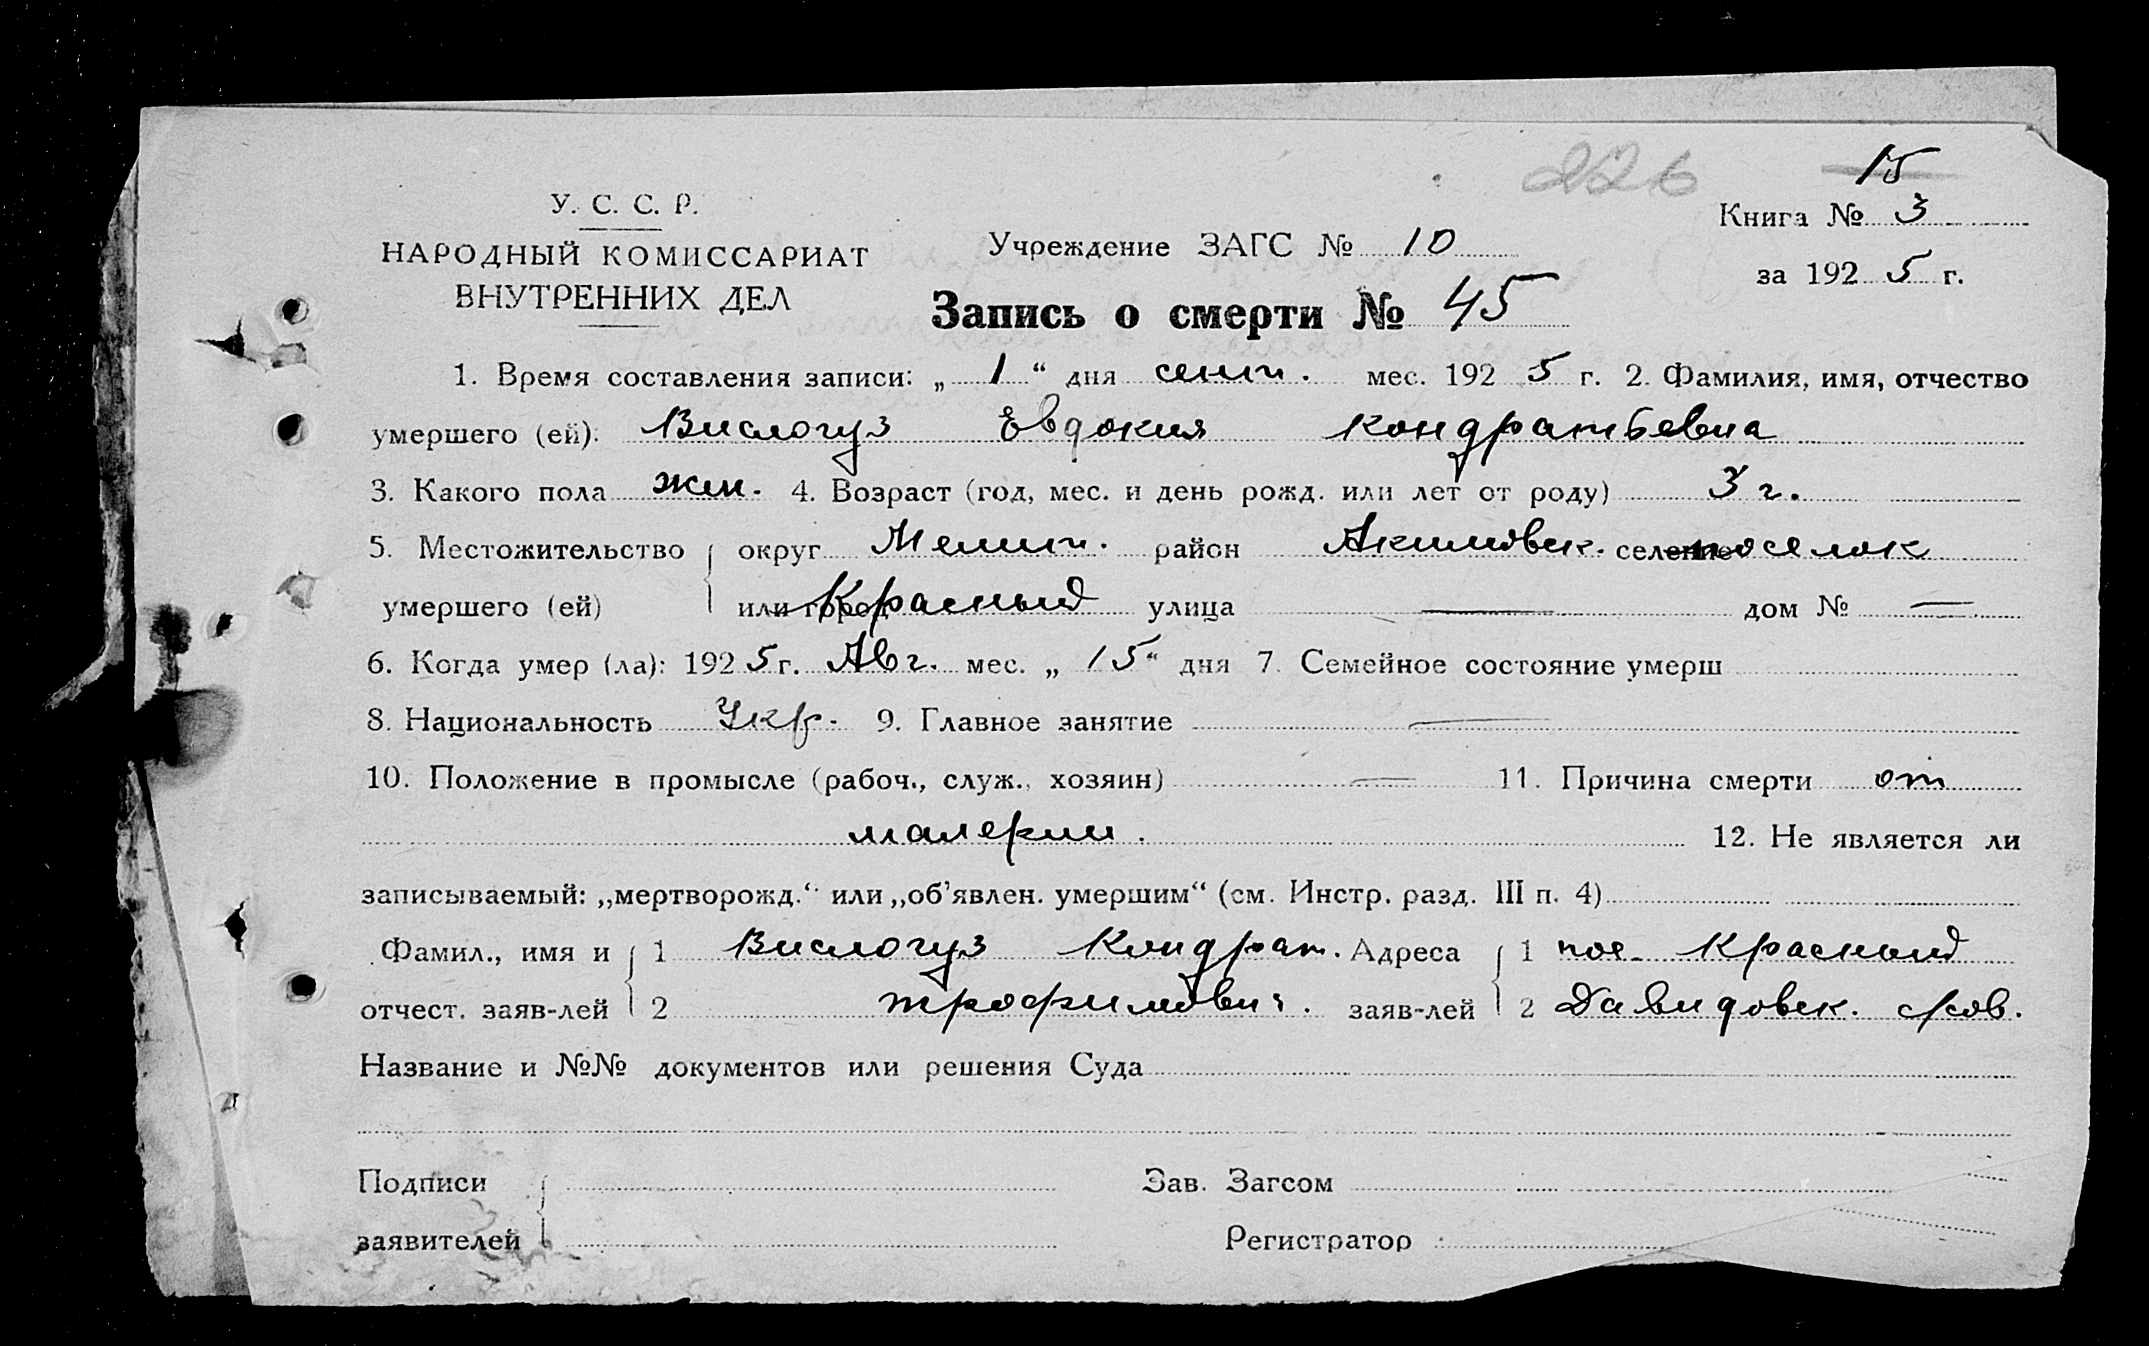 226
15
У. С. С. Р.
Книга № 3
НАРОДНЫЙ КОМИССАРИАТ
Учреждение ЗАГС № 10
за 1925 г.
ВНУТРЕННИХ ДЕЛ
Запись о смерти № 45
1. Время составления записи: „1“ дня сент. мес. 1925 г. 2. Фамилия, имя, отчество
умершего (ей): Вислогуз Евдокия Кондратьевна
3. Какого пола жен. 4. Возраст (год, мес. и день рожд. или лет от роду) 3 г.
5. Местожительство округ Мелит. район Акимовск. селение поселок
умершего (ей) или город Красный улица — дом № —
6. Когда умер (ла): 1925 г. Авг. мес. „15“ дня 7. Семейное состояние умерш
8. Национальность Укр. 9. Главное занятие —
10. Положение в промысле (рабоч., служ., хозяин) — 11. Причина смерти от
малерии. 12. Не является ли
записываемый: „мертворожд.“ или „об'явлен. умершим“ (см. Инстр. разд. III п. 4)
Фамил., имя и 1 Вислогуз Кондрат. Адреса 1 пос. Красный
отчест. заяв-лей 2 трофимович. заяв-лей 2 Давидовск. с/сов.
Название и №№ документов или решения Суда
Подписи Зав. Загсом
заявителей Регистратор